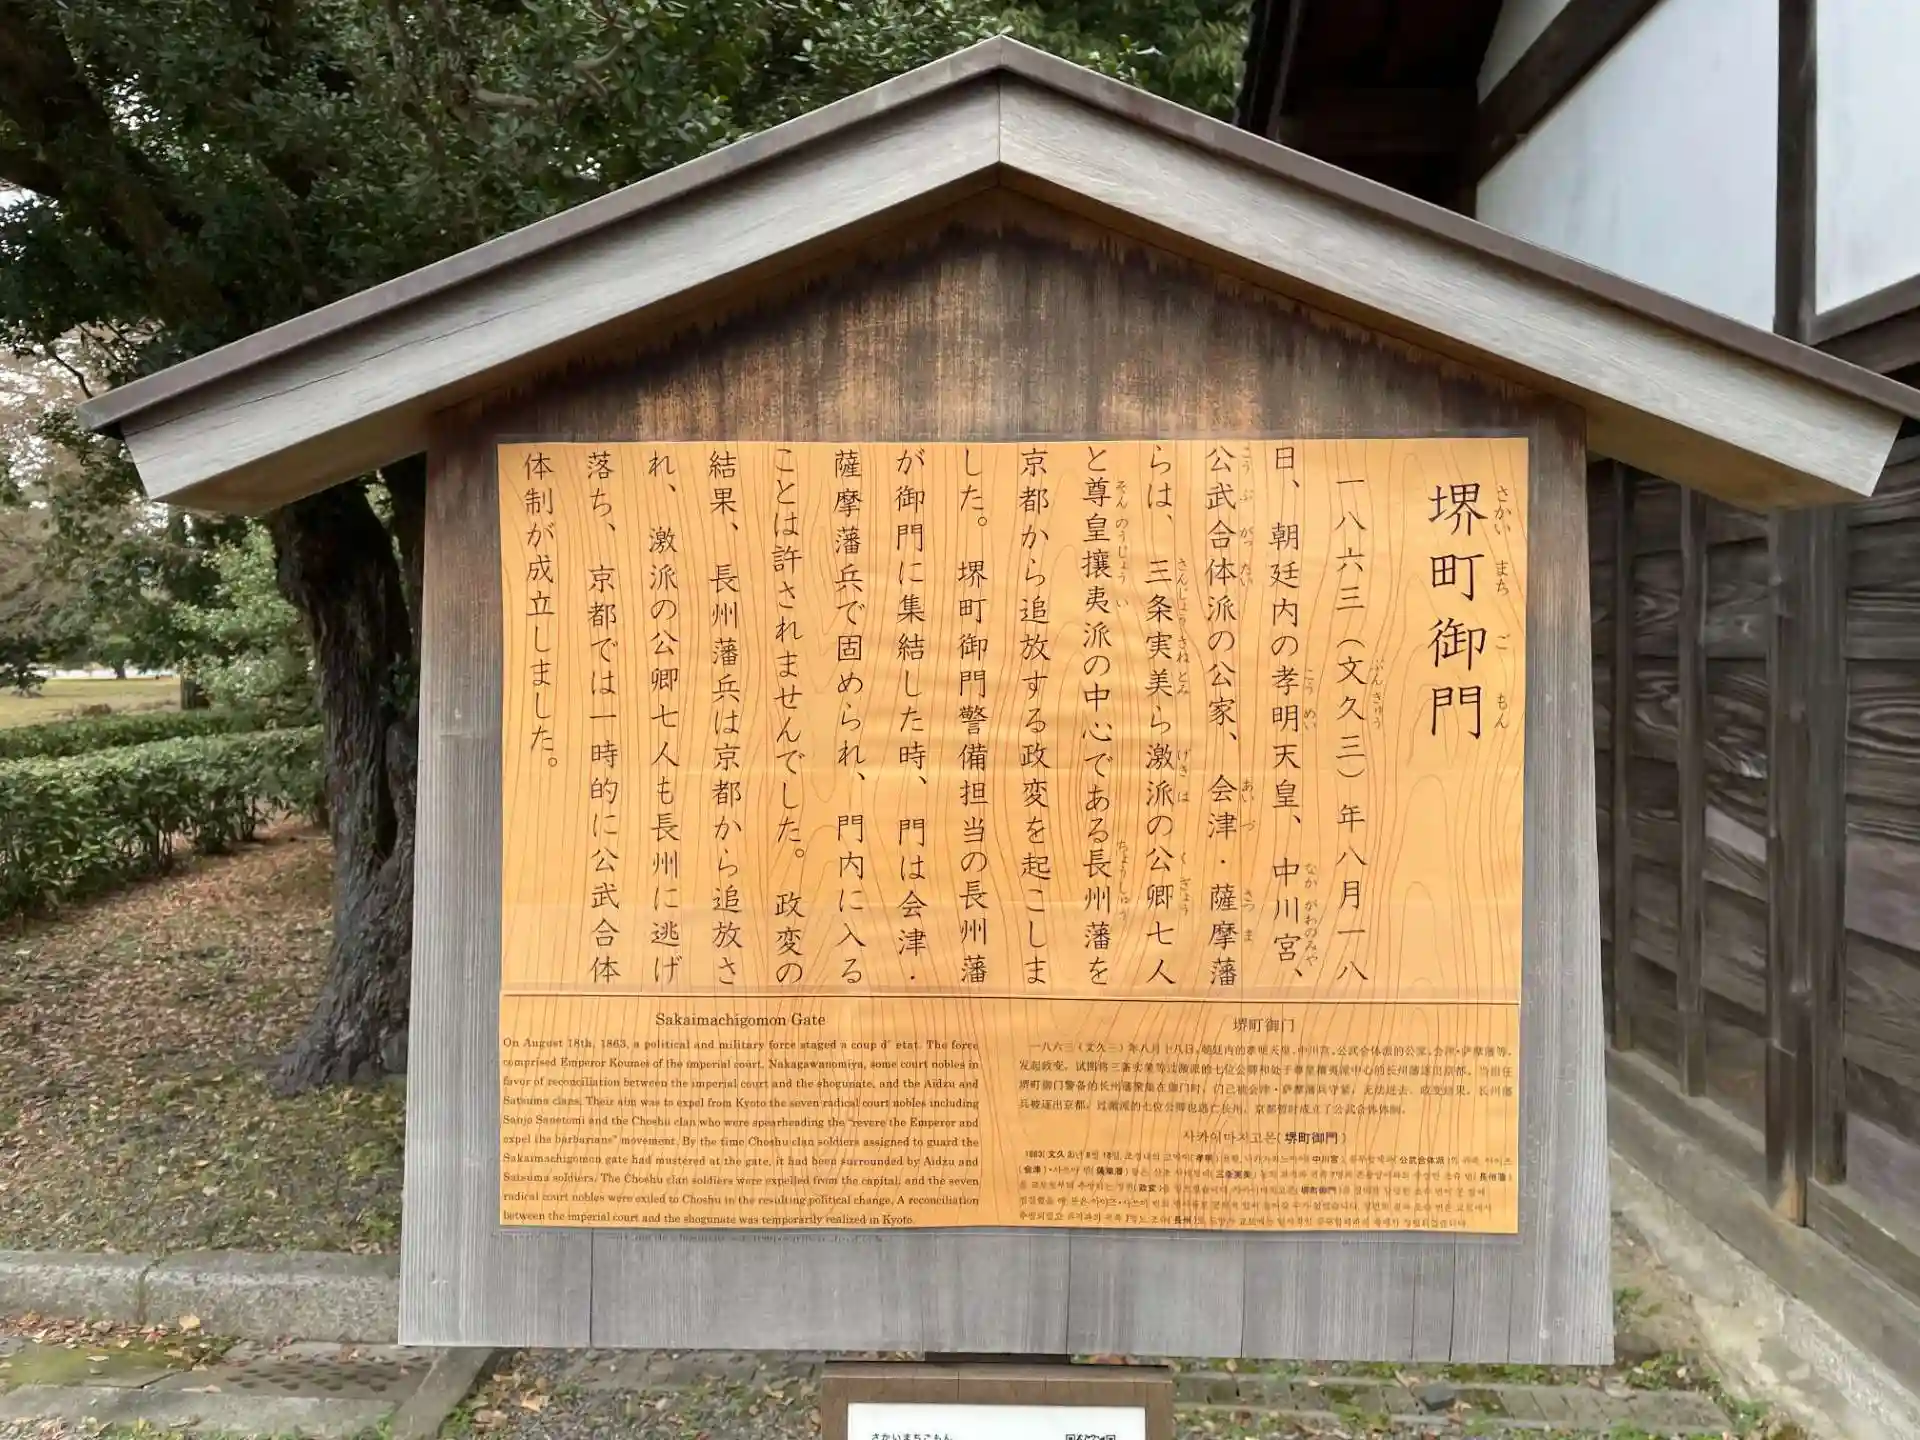 堺町御門
さかい まち ご もん
一八六三（文久三）年八月一八
ぶんきゅう
日、朝廷内の孝明天皇、中川宮、
こうめい なかがわのみや
公武合体派の公家、会津・薩摩藩
こうぶがったい あいづ さつま
らは、三条実美ら激派の公卿七人
さんじょうさねとみ げきは くぎょう
と尊皇攘夷派の中心である長州藩を
そんのうじょうい ちょうしゅう
京都から追放する政変を起こしま
した。堺町御門警備担当の長州藩
が御門に集結した時、門は会津・
薩摩藩兵で固められ、門内に入る
ことは許されませんでした。政変の
結果、長州藩兵は京都から追放さ
れ、激派の公卿七人も長州に逃げ
落ち、京都では一時的に公武合体
体制が成立しました。
Sakaimachigomon Gate
On August 18th, 1863, a political and military force staged a coup d' etat. The force
comprised Emperor Koumei of the imperial court, Nakagawanomiya, some court nobles in
favor of reconciliation between the imperial court and the shogunate, and the Aidzu and
Satsuma clans. Their aim was to expel from Kyoto the seven radical court nobles including
Sanjo Sanetomi and the Choshu clan who were spearheading the "revere the Emperor and
expel the barbarians" movement. By the time Choshu clan soldiers assigned to guard the
Sakaimachigomon gate had mustered at the gate, it had been surrounded by Aidzu and
Satsuma soldiers. The Choshu clan soldiers were expelled from the capital, and the seven
radical court nobles were exiled to Choshu in the resulting political change. A reconciliation
between the imperial court and the shogunate was temporarily realized in Kyoto.
堺町御门
一八六三（文久三）年八月十八日，朝廷内的孝明天皇，中川宫，公武合体派的公家，会津・萨摩藩等，
发起政变，试图将三条实美等过激派的七位公卿和处于尊皇攘夷派中心的长州藩逐出京都。当担任
堺町御门警备的长州藩聚集在御门时，门已被会津・萨摩藩兵守紧，无法进去。政变结果，长州藩
兵被逐出京都，过激派的七位公卿也逃亡长州，京都暂时成立了公武合体体制。
사카이마치고몬(堺町御門)
さかいまちごもん